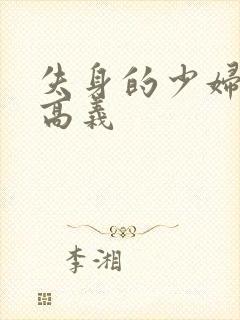 失身的少婦
高義
李湘